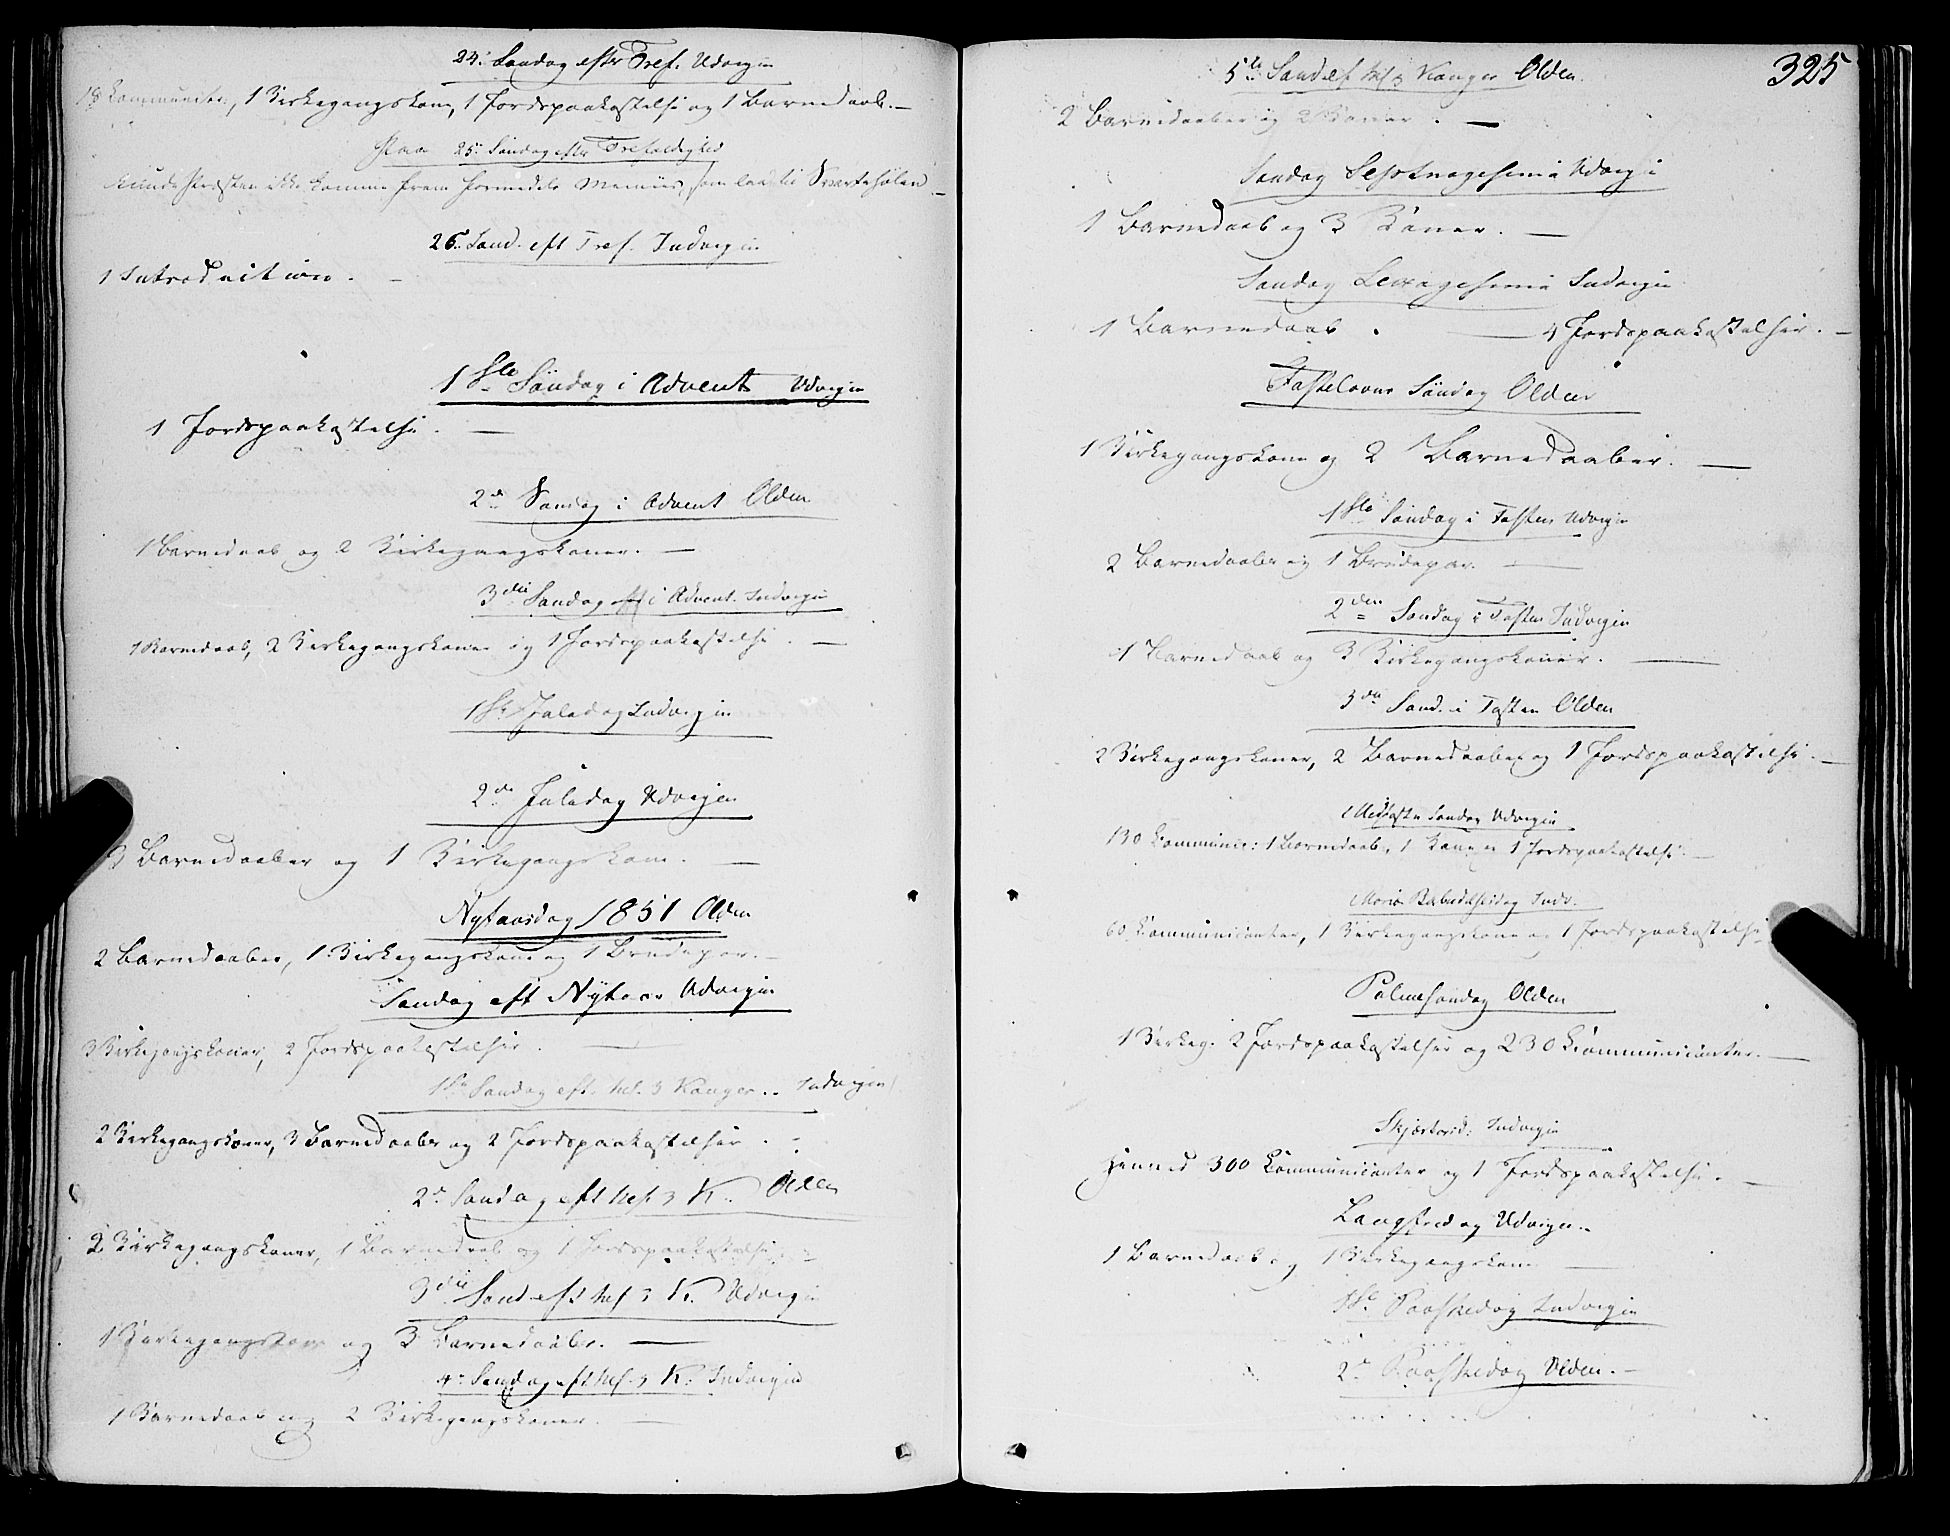 24. Søndag efter Tref. Udvigen
18 Communiter, 1 Kirkegangskone, 1 Jordspaakastelse og 1 Barnedaab. —
Paa 25. Søndag efter Trefoldighed
kunde Præsten ikke komme frem formedelst
26. Sønd. eft Tref. Indvigen
1 Introduction. —
1ste Søndag i Advent Udvigen
1 Jordspaakastelse. —
2den Søndag i Advent Olden
1 Barnedaab og 2 Kirkegangskoner. —
3die Søndag i Advent. Indvigen
1 Barnedaab, 2 Kirkegangskoner og 1 Jordspaakastelse. —
1ste Juledag Indvigen
2den Juledag Udvigen
3 Barnedaaber og 1 Kirkegangskone. —
Nytaarsdag 1851 Olden
2 Barnedaaber, 1 Kirkegangskone og 1 Brudepar. —
Søndag eft Nytaar Udvigen
3 Kirkegangskoner, 2 Jordspaakastelser. —
1ste Søndag eft. hel. 3 Konger.. Indvigen
2 Kirkegangskoner, 3 Barnedaaber og 2 Jordspaakastelser. —
2. Søndag eft hel 3 K. Olden
2 Kirkegangskoner, 1 Barnedaab og 1 Jordspaakastelse. —
3die Sønd eft hel 3 K. Udvigen
1 Kirkegangskone og 3 Barnedaaber. —
4. Søndag eft hel. 3 K. Indvigen
1 Barnedaab og 2 Kirkegangskoner. —
325
5te Sønd ef hel 3 Konger Olden.
2 Barnedaaber og 2 Koner. —
Søndag Septuagesima Udvigen
1 Barnedaab og 3 Koner. —
Søndag Sexagesima Indvigen
1 Barnedaab. — 4 Jordspaakastelser. —
Fastelavns Søndag Olden
1 Kirkegangskone og 2 Barnedaaber. —
1ste Søndag i Fasten Udvigen
2 Barnedaaber og 1 Brudepar. —
2den Søndag i Fasten Indvigen
1 Barnedaab og 3 Kirkegangskoner. —
3die Sønd. i Fasten Olden
2 Kirkegangskoner, 2 Barnedaaber og 1 Jordspaakastelse. —
Midfaste Søndag Udvigen
130 Communic: 1 Barnedaab, 1 Kone og 1 Jordspaakastelse. —
Mariæ Bebudelsesdag Indv.
60 Communicanter, 1 Kirkegangskone og 1 Jordspaakastelse
Palmesøndag Olden
1 Kirkeg. 2 Jordspaakastelser og 230 Communicanter. —
Skjærtorsd: Indvigen
300 Communicanter og 1 Jordspaakastelse. —
Langfredag Udvigen.
1 Barnedaab og 1 Kirkegangskone —
1ste Paaskedag Indvigen
2. Paaskedag Olden. —